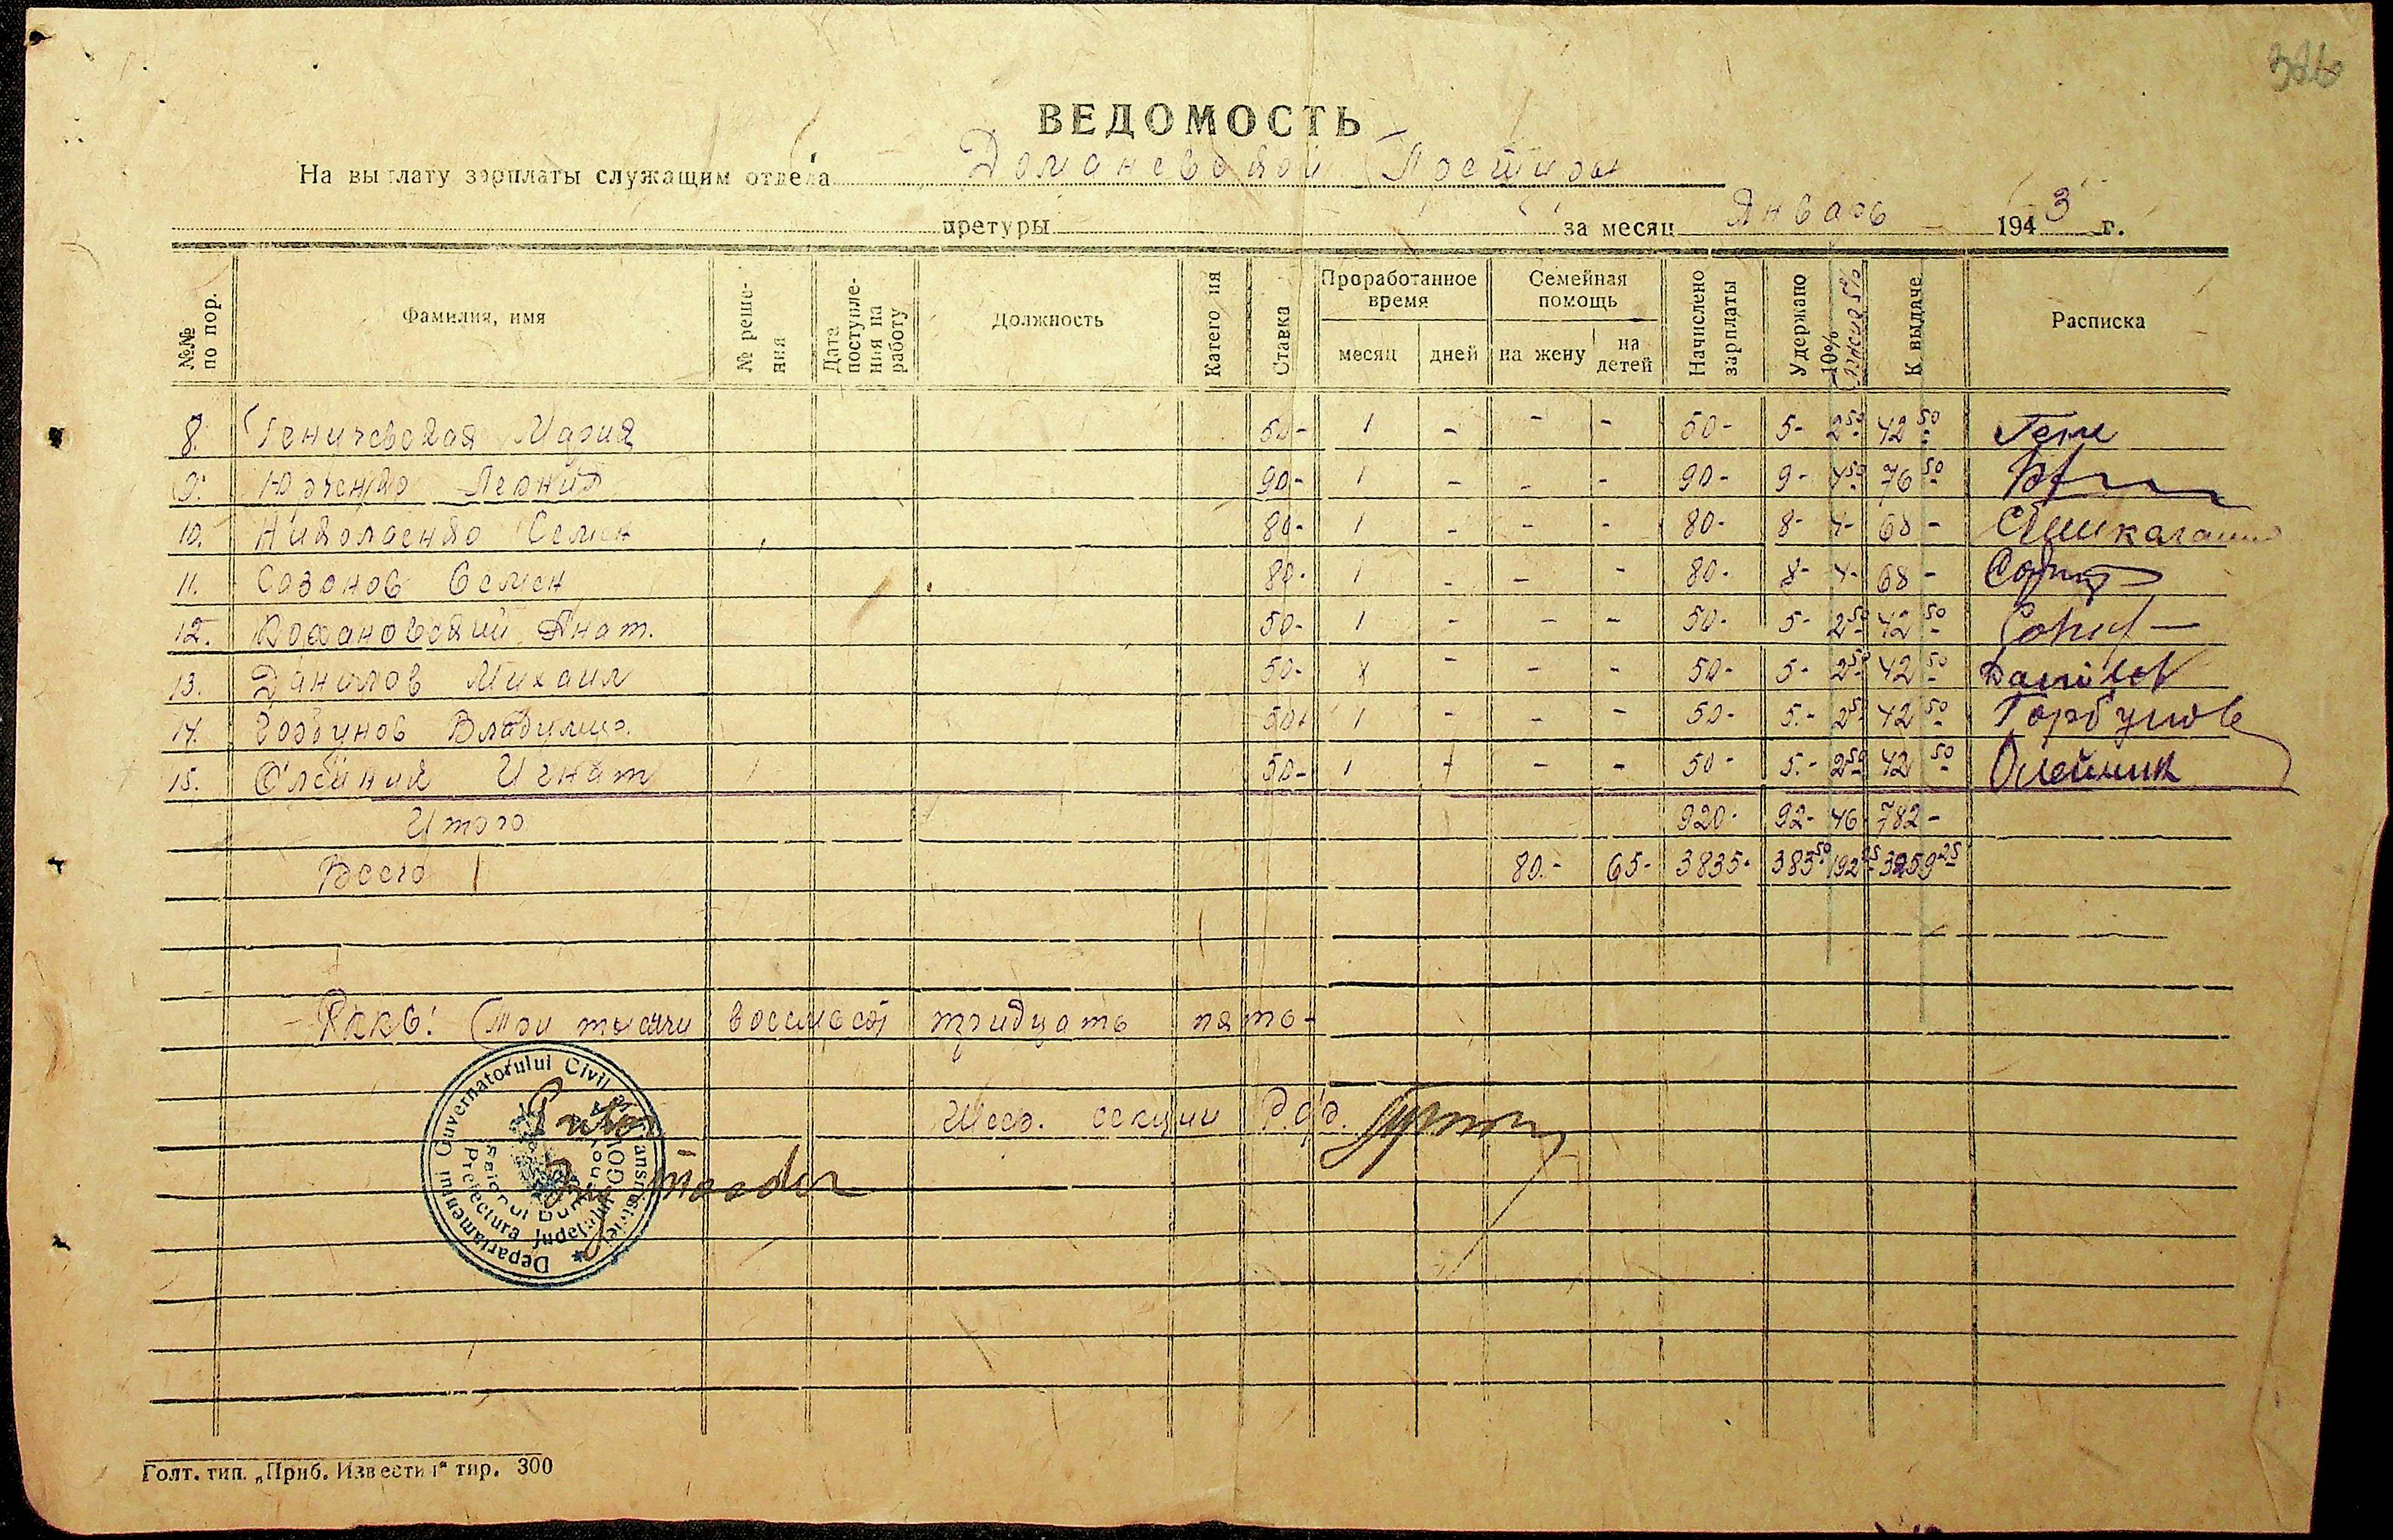 ВЕДОМОСТЬ
На выплату зарплаты служащим отдела Доманевской Претуры
претуры за месяц Январь 1943 г.
№№ по пор. Фамилия, имя № решения Дата поступления на работу Должность Категория Ставка Проработанное время месяц дней Семейная помощь на жену на детей Начислено зарплаты Удержано 10% пенсия 5% К выдаче Расписка
8. Геничевская Мария 50- 1 - - - 50- 5- 2 50 42 50
9. Юрченко Леонид 90- 1 - - - 90- 9- 4 50 76 50
10. Николаенко Семен 80- 1 - - - 80- 8- 4- 68-
11. Сазонов Семен 80- 1 - - - 80- 8- 4- 68-
12. Кохановский Анат. 50- 1 - - - 50- 5- 2 50 42 50
13. Данилов Михаил 50- 1 - - - 50- 5- 2 50 42 50 Danilov
14. Горбунов Владимир. 50- 1 - - - 50- 5.- 2 5 42 50 Горбунов
15. Олейник Игнат 50- 1 - - - 50- 5.- 2 50 42 50 Олейник
Итого 920- 92- 46- 782-
Всего 80.- 65- 3835- 383 50 192 25 3259 25
(три тысячи восемсот тридцать пять-
секции
Pretor
Departamentul Guvernatorului Civil al Transnistriei
Prefectura Judeţului GOLTA
Raionul Dumanovca
Голт. тип. „Приб. Известия“ тир. 300